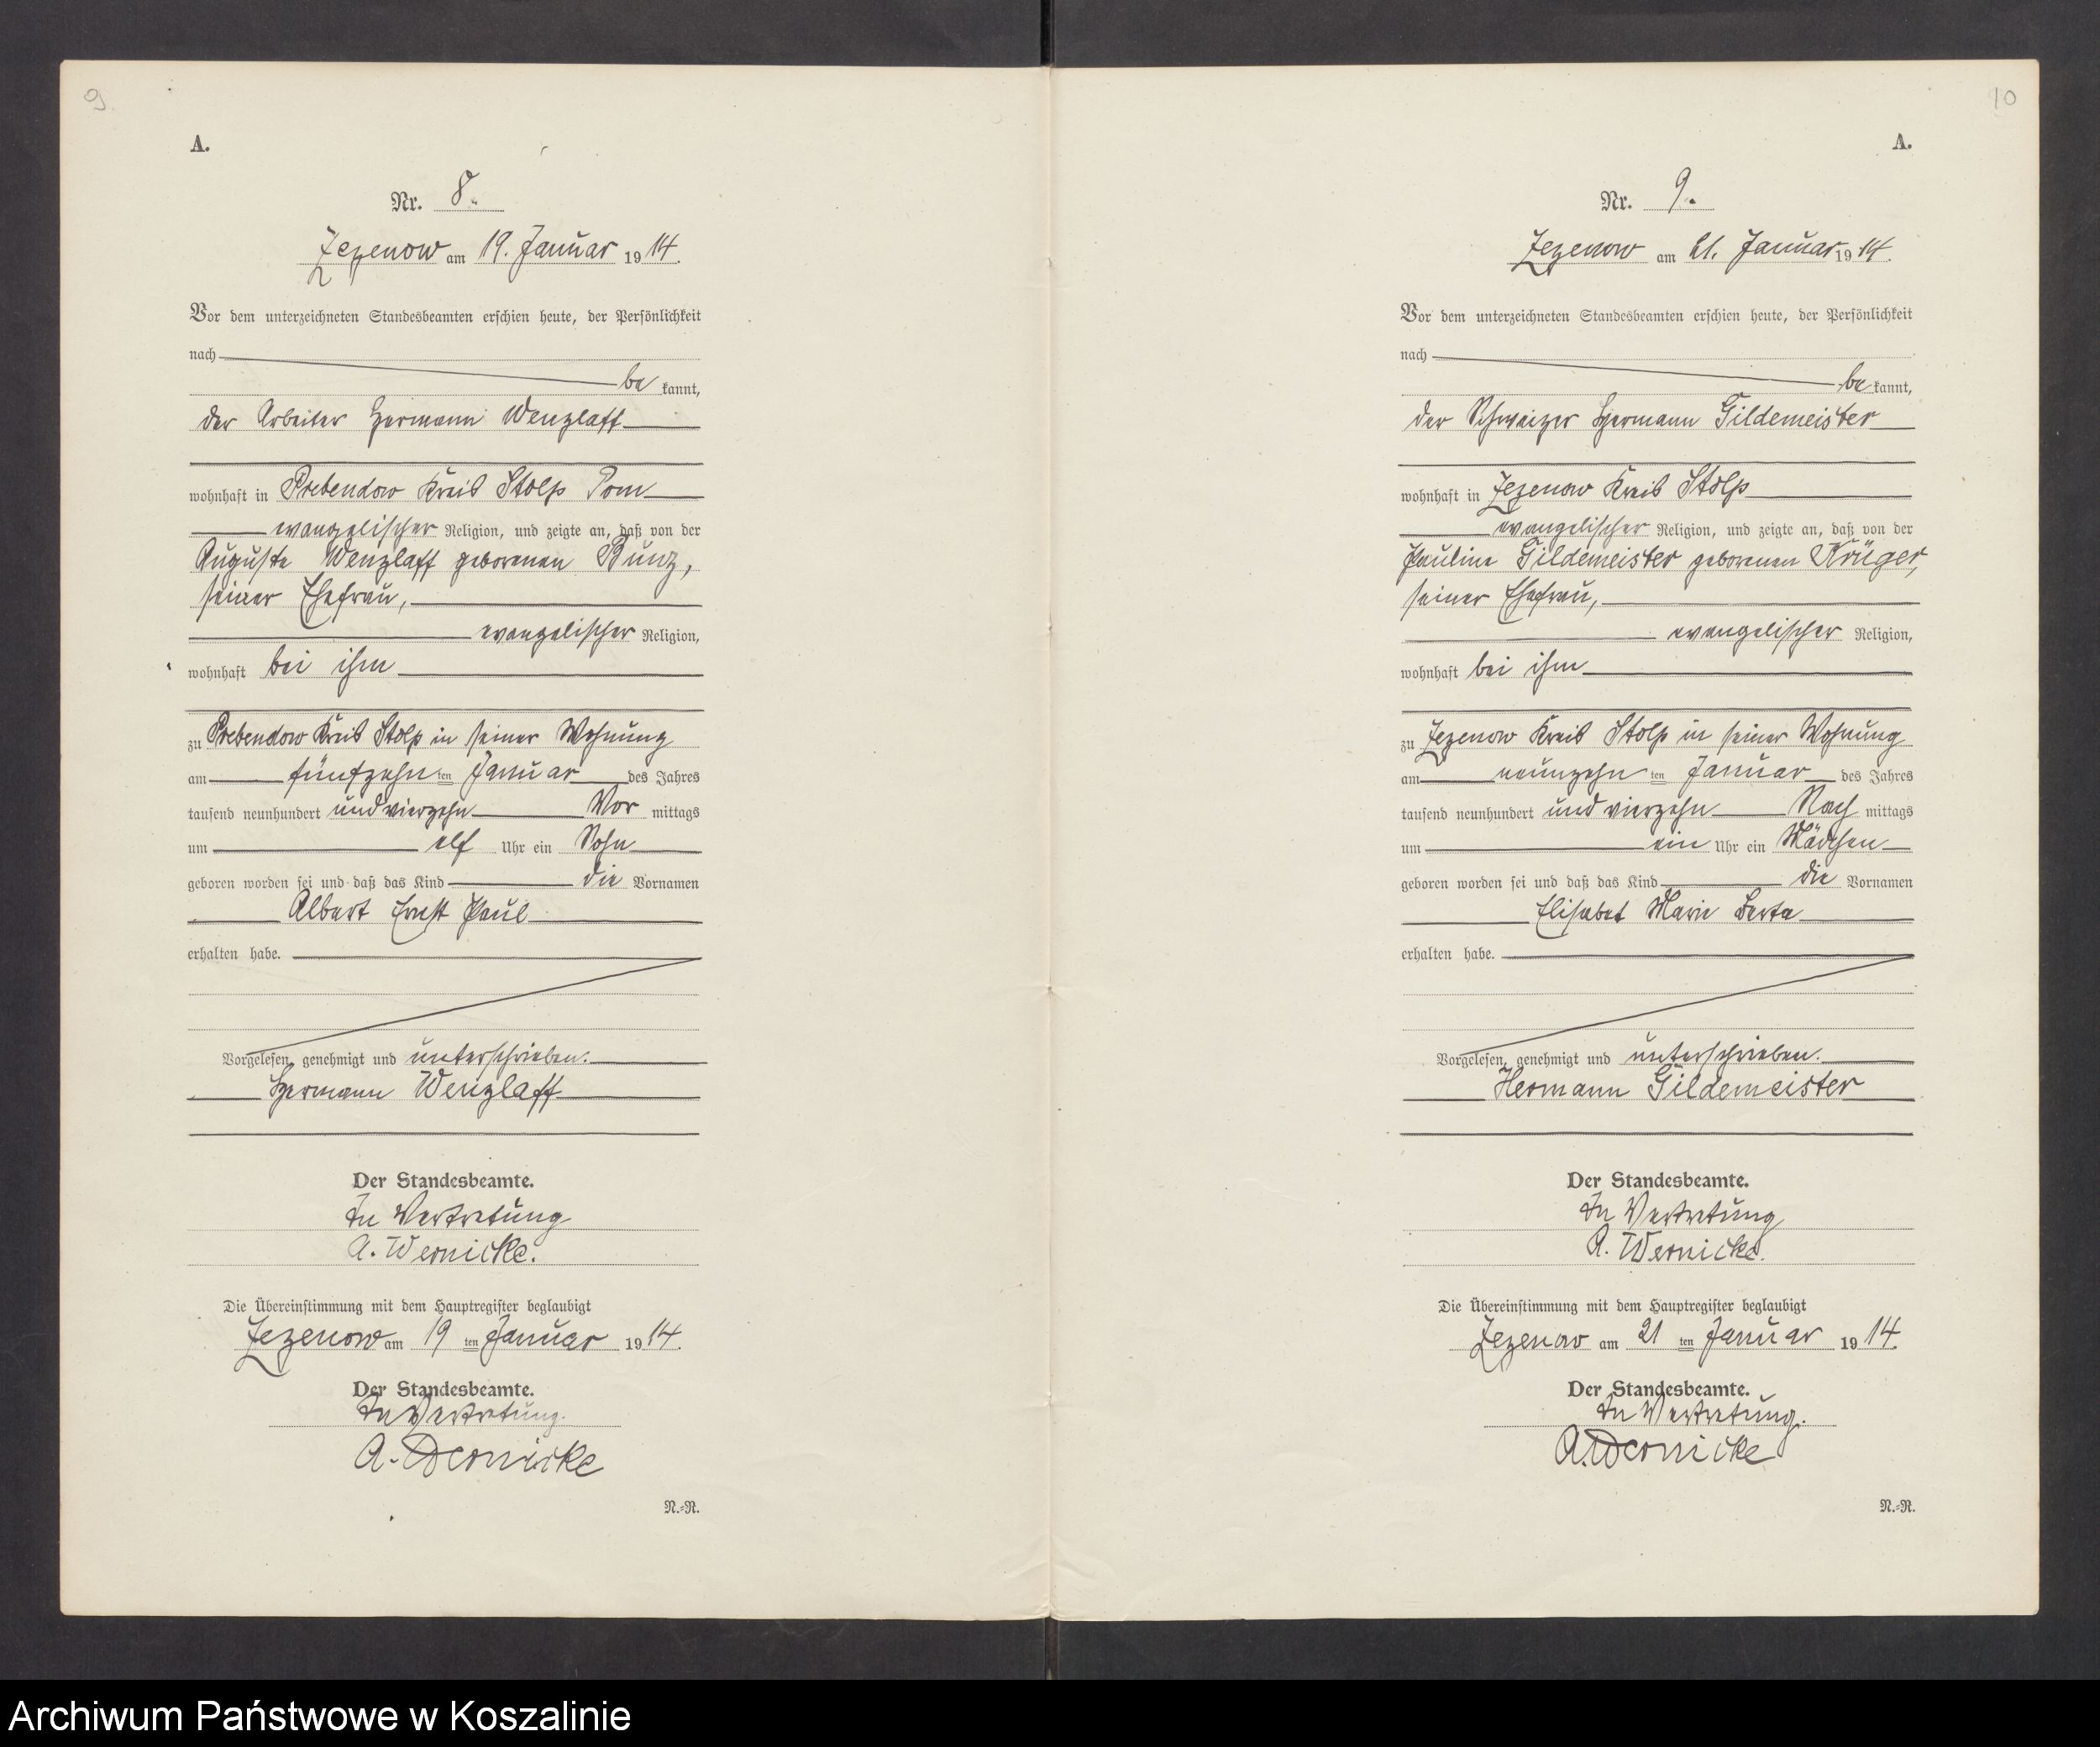 9
A.
Nr. 8.
Zezenow am 19. Januar 1914.
Vor dem unterzeichneten Standesbeamten erschien heute, der Persönlichkeit
nach
be kannt,
der Arbeiter Hermann Wenzlaff
wohnhaft in Prebendow Kreis Stolp Pom
evangelischer Religion, und zeigte an, daß von der
Auguste Wenzlaff geborenen Bunz,
seiner Ehefrau,
evangelischer Religion,
wohnhaft bei ihm
zu Prebendow Kreis Stolp in seiner Wohnung
am fünfzehn ten Januar des Jahres
tausend neunhundert und vierzehn Vor mittags
um elf Uhr ein Sohn
geboren worden sei und daß das Kind die Vornamen
Albert Ernst Paul
erhalten habe.
Vorgelesen, genehmigt und unterschrieben.
Hermann Wenzlaff
Der Standesbeamte.
In Vertretung
A. Wernicke.
Die Übereinstimmung mit dem Hauptregister beglaubigt
Zezenow am 19 ten Januar 1914.
Der Standesbeamte.
In Vertretung.
A. Wernicke
N.=R.
10
A.
Nr. 9.
Zezenow am 21. Januar 1914.
Vor dem unterzeichneten Standesbeamten erschien heute, der Persönlichkeit
nach
be kannt,
der Schweizer Hermann Gildemeister
wohnhaft in Zezenow Kreis Stolp
evangelischer Religion, und zeigte an, daß von der
Pauline Gildemeister geborenen Krüger,
seiner Ehefrau,
evangelischer Religion,
wohnhaft bei ihm
zu Zezenow Kreis Stolp in seiner Wohnung
am neunzehn ten Januar des Jahres
tausend neunhundert und vierzehn Nach mittags
um ein Uhr ein Mädchen
geboren worden sei und daß das Kind die Vornamen
Elisabet Marie Berta
erhalten habe.
Vorgelesen, genehmigt und unterschrieben.
Hermann Gildemeister
Der Standesbeamte.
In Vertretung
A. Wernicke.
Die Übereinstimmung mit dem Hauptregister beglaubigt
Zezenow am 21 ten Januar 1914.
Der Standesbeamte.
In Vertretung.
A. Wernicke
N.=R.
Archiwum Państwowe w Koszalinie